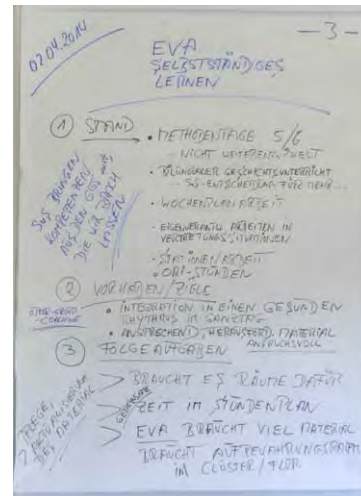 07.04.2014
— 3 —
EVA
SELBSTSTÄNDIGES
LERNEN
① STAND
• METHODENTAGE 5/6
- NICHT WEITERENTWICKELT
• BILINGUALER GESCHICHTSUNTERRICHT
- SUS-ENTSCHEIDUNG FÜR MEHR...
• WOCHENPLANARBEIT
• EIGENVERANTW. ARBEITEN IN
VERTRETUNGSSITUATIONEN
- STATIONENARBEIT
• ORI-STUNDEN
SUS BRINGEN
KOMPETENZEN
AUS DEN GGS MIT
DIE WIR BRACH
LASSEN
② VORHABEN/ZIELE
• INTEGRATION IN EINEN GESUNDEN
RHYTHMUS IM GANZTAG
• ANSPRECHEND, HERAUSFORD. MATERIAL
ANSPRUCHSVOLL
-COACHING
③ FOLGEAUFGABEN
> BRAUCHT ES RÄUME DAFÜR
> ZEIT IM STUNDENPLAN
> EVA BRAUCHT VIEL MATERIAL
BRAUCHT AUFBEWAHRUNGSRAUM
IM CLUSTER/FLUR
PFLEGE,
AKTUALISIERUNG
DES MATERIAL